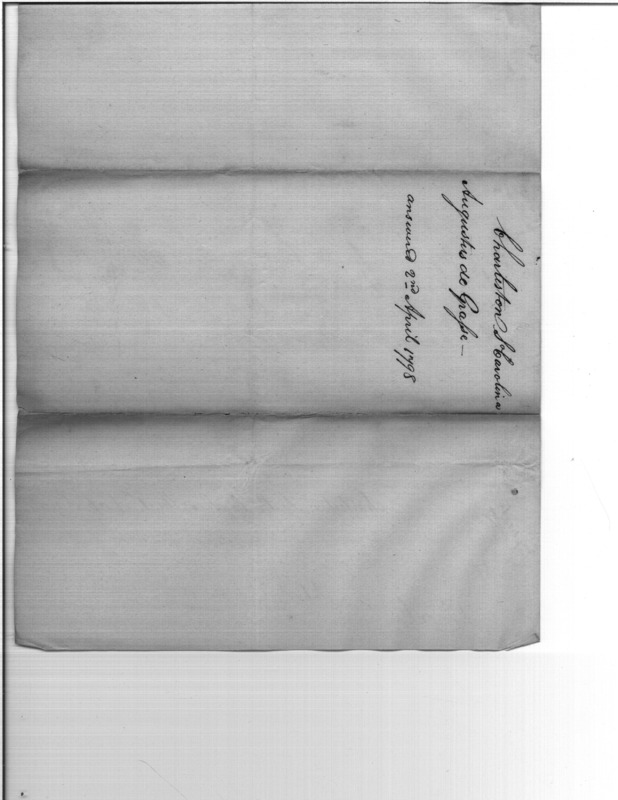 Charleston So Carolina
Augustus de Grasse —
answered 2nd April 1798